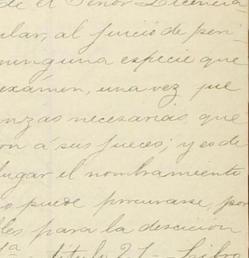 de el Señor Licencia
ular, al juicio de peri
ninguna especie que
exámen, una vez que
nzas necesarias que
on á sus jueces; y es de
lugar el nombramiento
o puede procurarse, por
les para la
1ª título 21 Libro